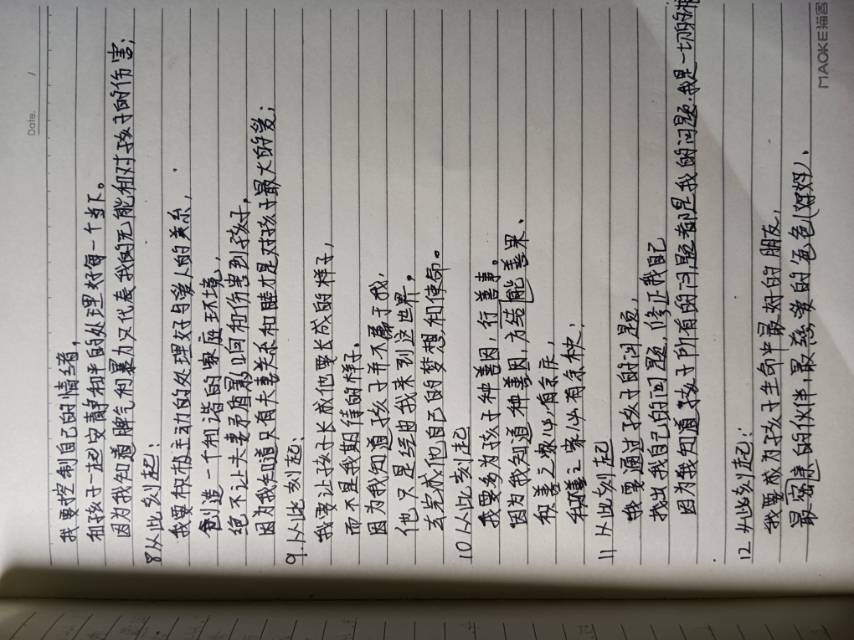 Date.    /
我要控制自己的情绪,
和孩子一起安静和平的处理好每一个当下。
因为我知道脾气和暴力只代表我的无能和对孩子的伤害;
8从此刻起:
我要积极主动的处理好与爱人的关系,
创造一个和谐的家庭环境,
绝不让夫妻矛盾影响和伤害到孩子,
因为我知道只有夫妻关系和睦才是对孩子最大的爱;
9.从此刻起:
我要让孩子长成他要长成的样子,
而不是我期待的样子。
因为我知道孩子并不属于我,
他只是经由我来到这世界。
去完成他自己的梦想和使命。
10从此刻起
我要多为孩子种善因,行善事。
因为我知道种善因,方结能善果、
积善之家必有余庆
积善之家必有余
11从此刻起
我要通过孩子的问题,
找出我自己的问题,修正我自己
因为我知道孩子所有的问题都是我的问题.我是一切的
12从此刻起:
我要成为孩子生命中最好的朋友,
最亲密的伙伴,最慈爱的爸爸(妈妈).
MAOKE猫客